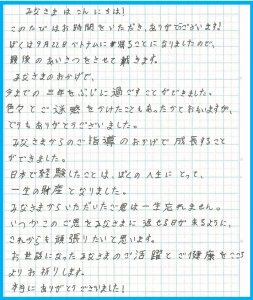 みなさま こんにちは!
このたびはお時間をいただき、ありがでございます!
ぼくは9月22日ベトナムに帰ることになりましたので、
最後のあいさつをさせて戴きます。
みなさまのおかげで、
今までの三年をぶじに過ですことができました。
色々とご迷惑をかけたこともあったかとおもいますが、
とてもありがとうございました。
みなさまからのご指導のおかげで成長すること
ができました。
日本で経験したことは、ぼくの人生にとって、
一生の財産となりました。
みなさまからいただいたご恩は一生忘れません。
いつかこのご恩をみなさまに返せる日が来るように、
これからも頑張りたいと思います。
お世話になったみなさまのご活躍とご健康をこころ
よりお祈りします。
本当にありがとうございました!